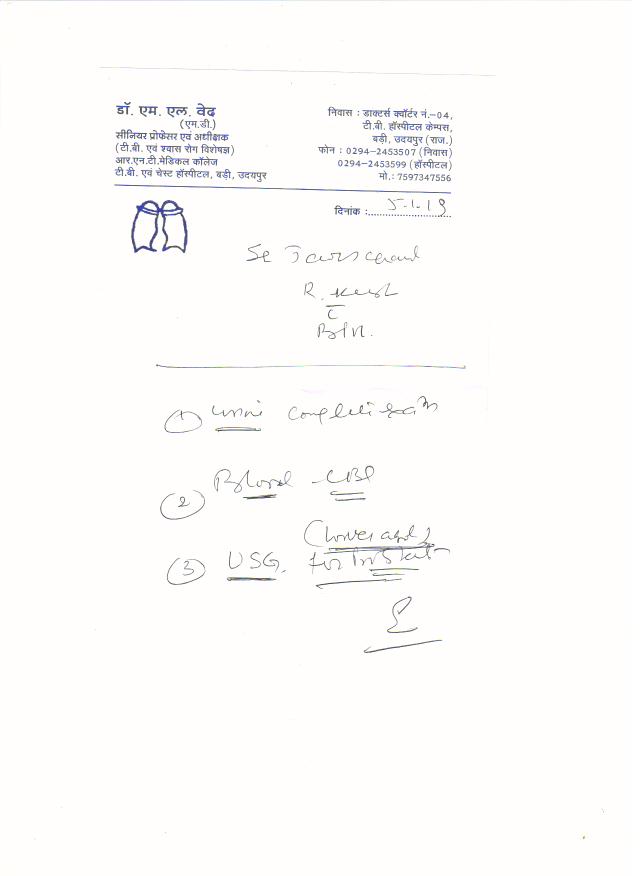 डॉ. एम. एल. वेद
(एम.डी.)
सीनियर प्रोफेसर एवं अधीक्षक
(टी.बी. एवं श्वास रोग विशेषज्ञ)
आर.एन.टी.मेडिकल कॉलेज
टी.बी. एवं चेस्ट हॉस्पीटल, बड़ी, उदयपुर
निवास : डाक्टर्स क्वॉर्टर नं.–04,
टी.बी. हॉस्पीटल केम्पस,
बड़ी, उदयपुर (राज.)
फोन : 0294–2453507 (निवास)
0294–2453599 (हॉस्पीटल)
मो.: 7597347556
दिनांक : 5-1-19
R.
C
① Urine
② Blood CBP
(lower abd)
③ USG. for